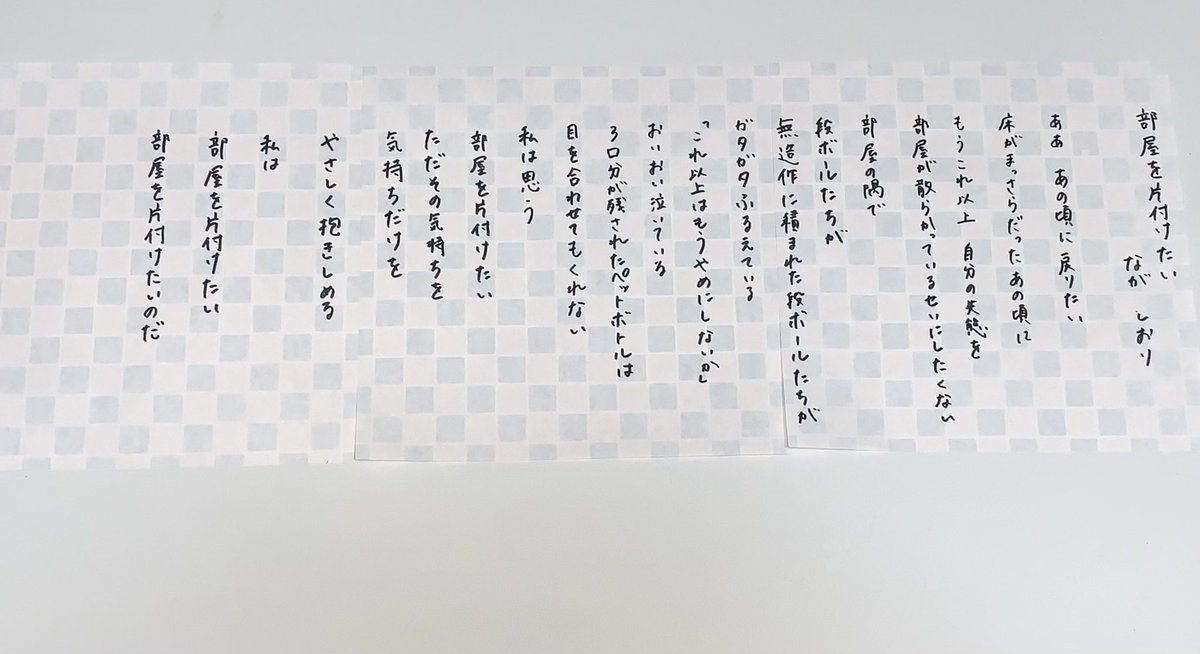 部屋を片付けたい
ながしおり
ああ あの頃に戻りたい
床がまっさらだったあの頃に
もうこれ以上 自分の失態を
部屋が散らかっているせいにしたくない
部屋の隅で
段ボールたちが
無造作に積まれた段ボールたちが
ガタガタふるえている
「これ以上はもうやめにしないか」
おいおい泣いている
3口分が残されたペットボトルは
目を合わせてもくれない
私は思う
部屋を片付けたい
ただその気持ちを
気持ちだけを
やさしく抱きしめる
私は
部屋を片付けたい
部屋を片付けたいのだ